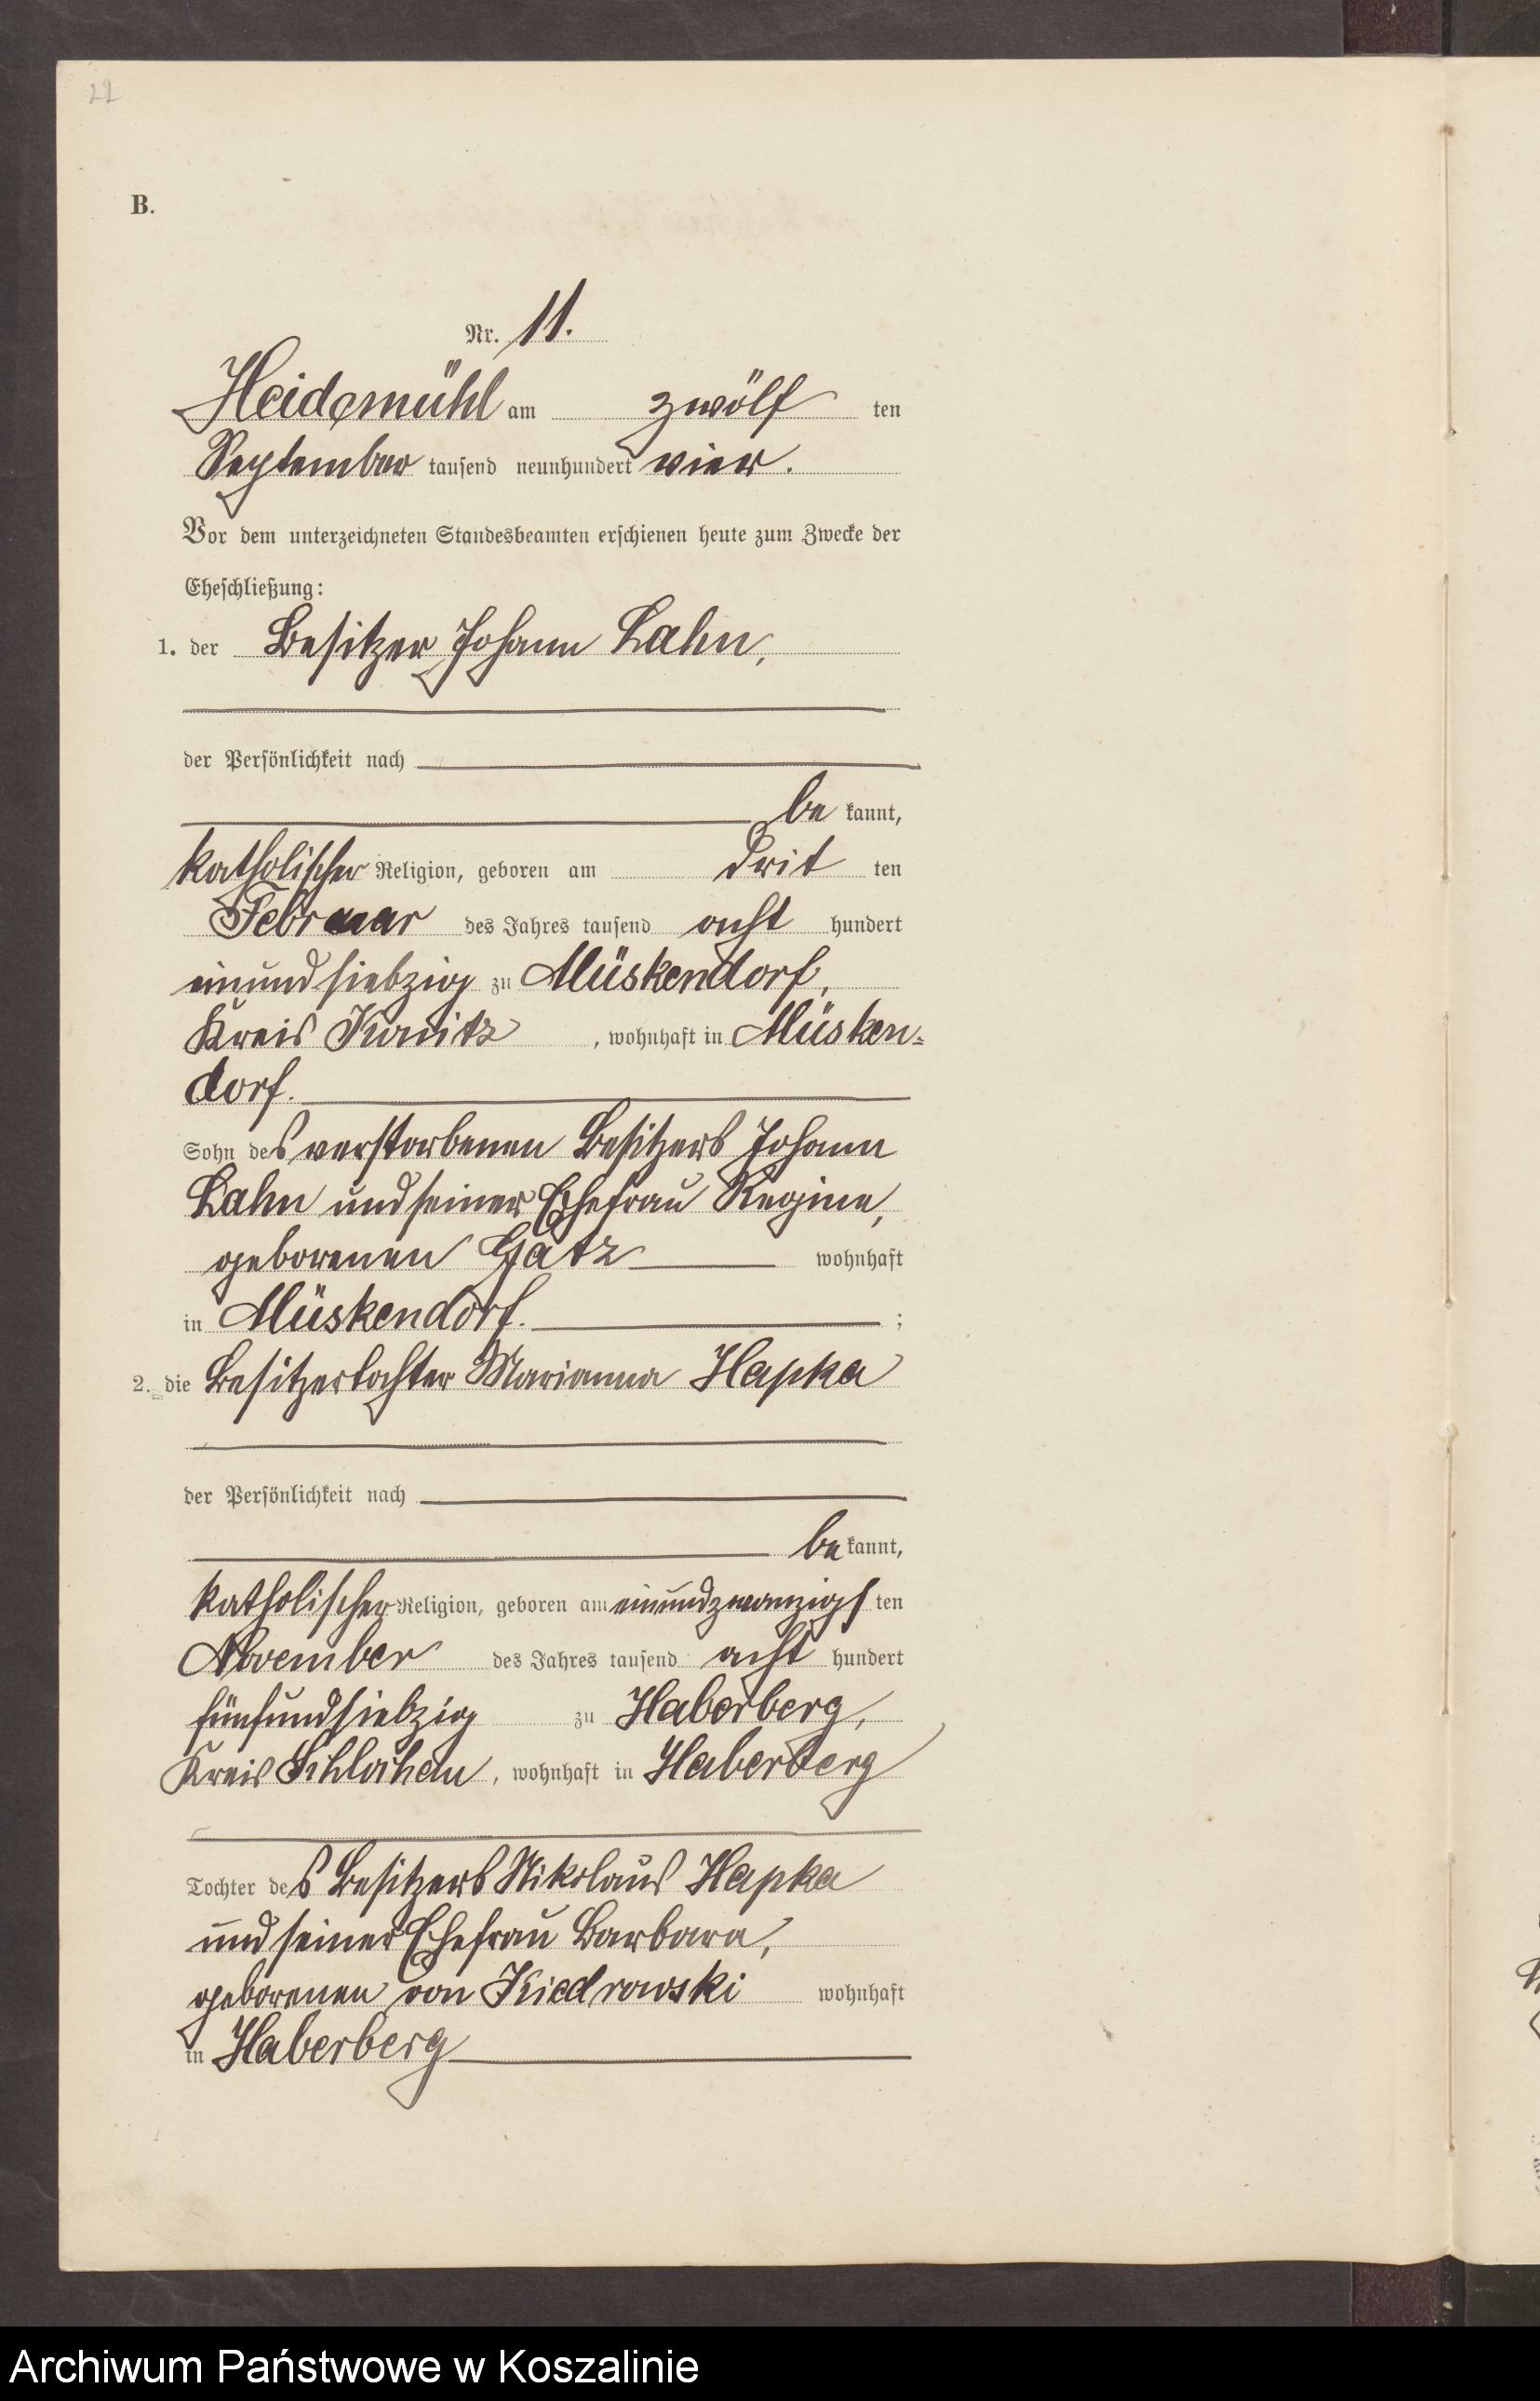 22
B.
Nr. 11.
Heidemühl am zwölf ten
September tausend neunhundert vier.
Vor dem unterzeichneten Standesbeamten erschienen heute zum Zwecke der
Eheschließung:
1. der Besitzer Johann Lahn,
der Persönlichkeit nach
be kannt,
katholischer Religion, geboren am drit ten
Februar des Jahres tausend acht hundert
einundsiebzig zu Müskendorf,
Kreis Konitz, wohnhaft in Müsken=
dorf.
Sohn des verstorbenen Besitzers Johann
Lahn und seiner Ehefrau Regine,
geborenen Gatz wohnhaft
in Müskendorf. ;
2. die Besitzertochter Marianna Hapka
der Persönlichkeit nach
be kannt,
katholischer Religion, geboren am einundzwanzigs ten
November des Jahres tausend acht hundert
fünfundsiebzig zu Haberberg,
Kreis Schlochau, wohnhaft in Haberberg
Tochter des Besitzers Nikolaus Hapka
und seiner Ehefrau Barbara,
geborenen von Kiedrowski wohnhaft
in Haberberg
Archiwum Państwowe w Koszalinie